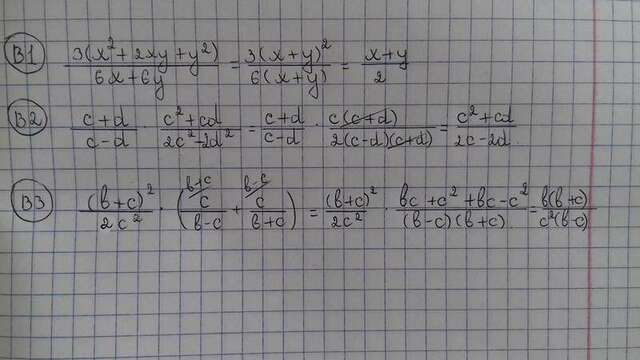 B1 3(x²+2xy+y²)/6x+6y = 3(x+y)²/6(x+y) = x+y/2
B2 c+d/c-d · c²+cd/2c²-2d² = c+d/c-d · c(c+d)/2(c-d)(c+d) = c²+cd/2c-2d
B3 (b+c)²/2c² · (b+c c/b-c + b-c c/b+c) = (b+c)²/2c² · bc+c²+bc-c²/(b-c)(b+c) = b(b+c)/c²(b-c)